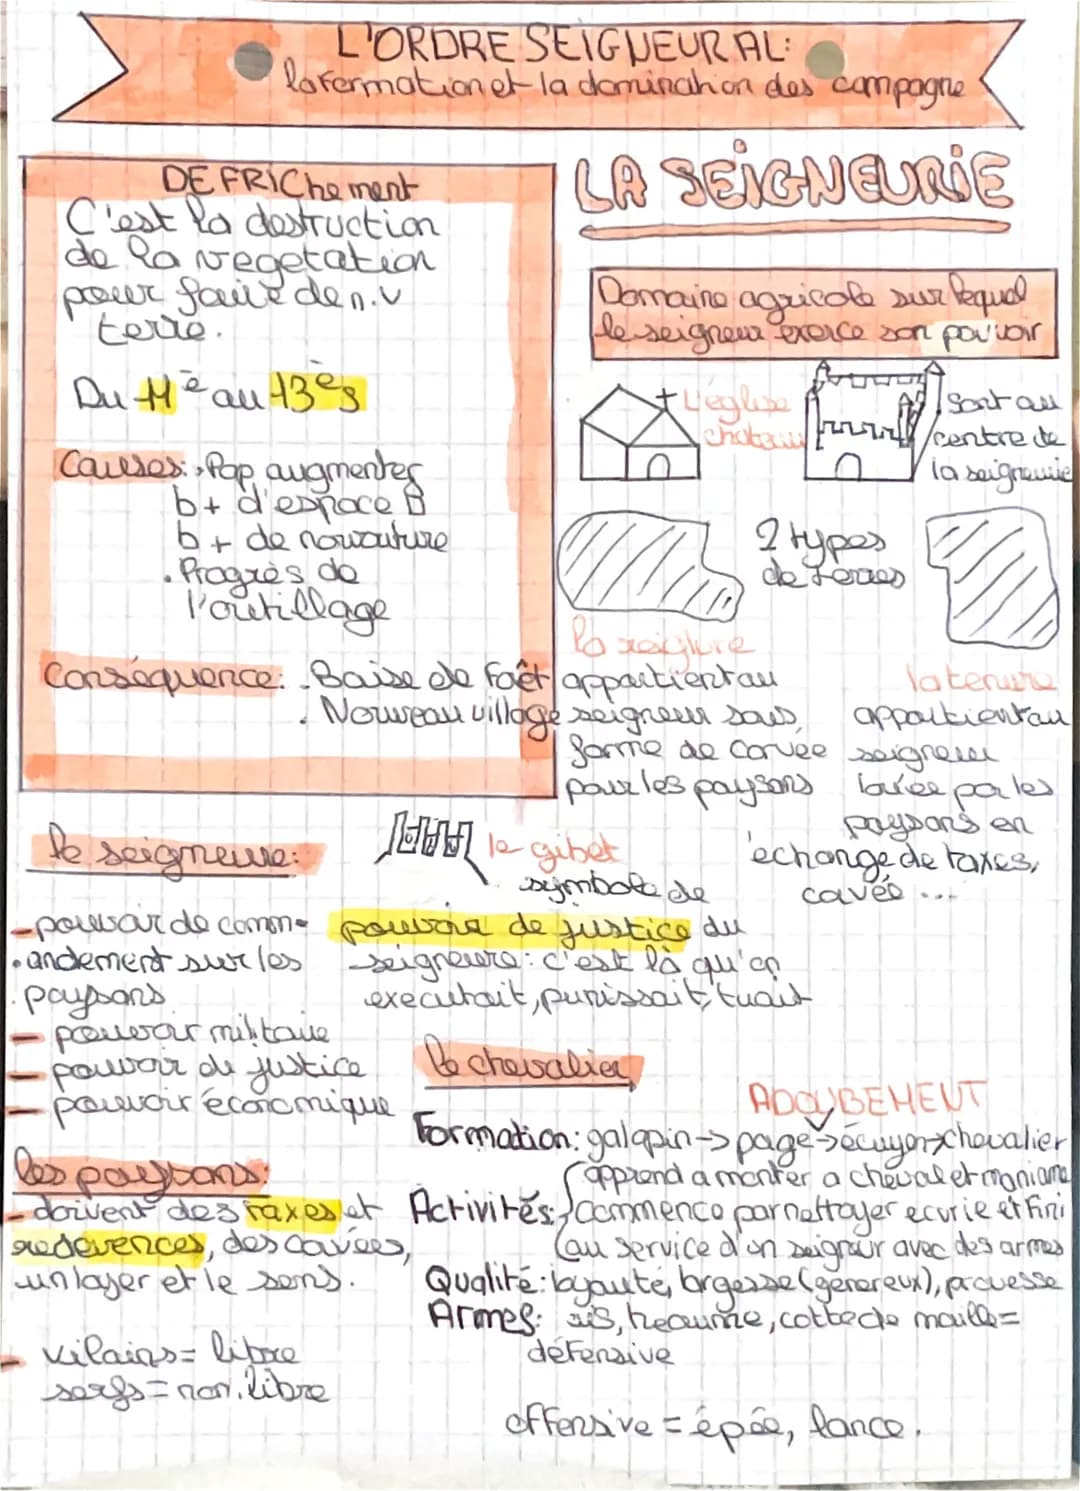 L'ORDRE SEIGNEURAL:
la formation et la domination des campagne
DEFRIChement
C'est la destruction
de la vegetation
pour faire de n.v
terre.
Du 11è au 13ès
Causes: Pop augmenter
b+ d'espace
b+ de nourriture
. Progrès de
l'outillage
Conséquence: . Baise de Foêt
. Nouveau village
LA SEIGNEURIE
Domaine agricole sur lequel
le seigneur exerce son pouvoir
L'église
chateau
Sont au
centre de
la seigneurie
2 types
de terres
la
appartient au
seigneur sous
forme de corvée
pour les paysans
la tenure
appartient au
seigneur
louée par les
paysans en
échange de taxes,
cavée ...
le seigneur:
- pouvoir de comm-
andement sur les
paysans
- pouvoir militaire
- pouvoir de justice
- pouvoir économique
le gibet
symbole de
pouvoir de justice du
seigneur: c'est là qu'on
executait, punissait, tuait
les paysans:
- doivent des taxes et
redevences, des cavées,
un loyer et le sens.
- vilains = libre
serfs = non.libre
le chevalier
ADOUBEMENT
Formation: galopin -> page -> écuyer -> chevalier
Activités: apprend a monter a cheval et
commence par nettoyer ecurie et fini
au service d'un seigneur avec des armes
Qualité: loyauté, largesse (genereux), prouesse
Armes: heaume, cotte de maille =
défensive
offensive = épée, lance.